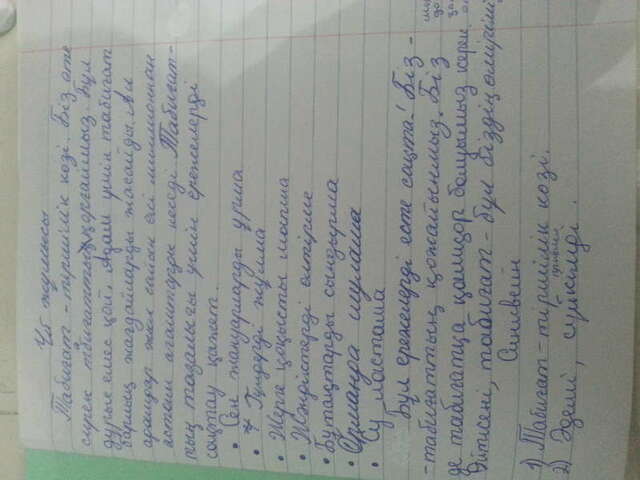 Үй жұмысы
Табиғат - тіршілік көзі. Біз өте
сирек табиғатты қорғаймыз. Бұл
дұрыс емес қой. Адам үшін табиғат
барлық жағдайларды жасайды. Ал
адамдар жыл сайын екі миллионнан
астам ағаштарды кеседі. Табиғат-
тың тазалығы үшін ережелерді
сақтау қажет.
• Сен жануарларды ұрма
• Гүлдерді жұлма
• Жерге қоқысты тастама
• Жәндіктерді өлтірме
• бұтақтарды сындырма
• Орманда шулама
• Су ластама
Бұл ережелерді есте сақта! Біз -
- табиғаттың қожайынымыз. Біз
де табиғатқа қамқор болуымыз керек
Өйткені, табиғат - бұл біздің өміріміз
Синквейн
1) Табиғат - тіршілік көзі.
2) Әдемі, сүйкімді.